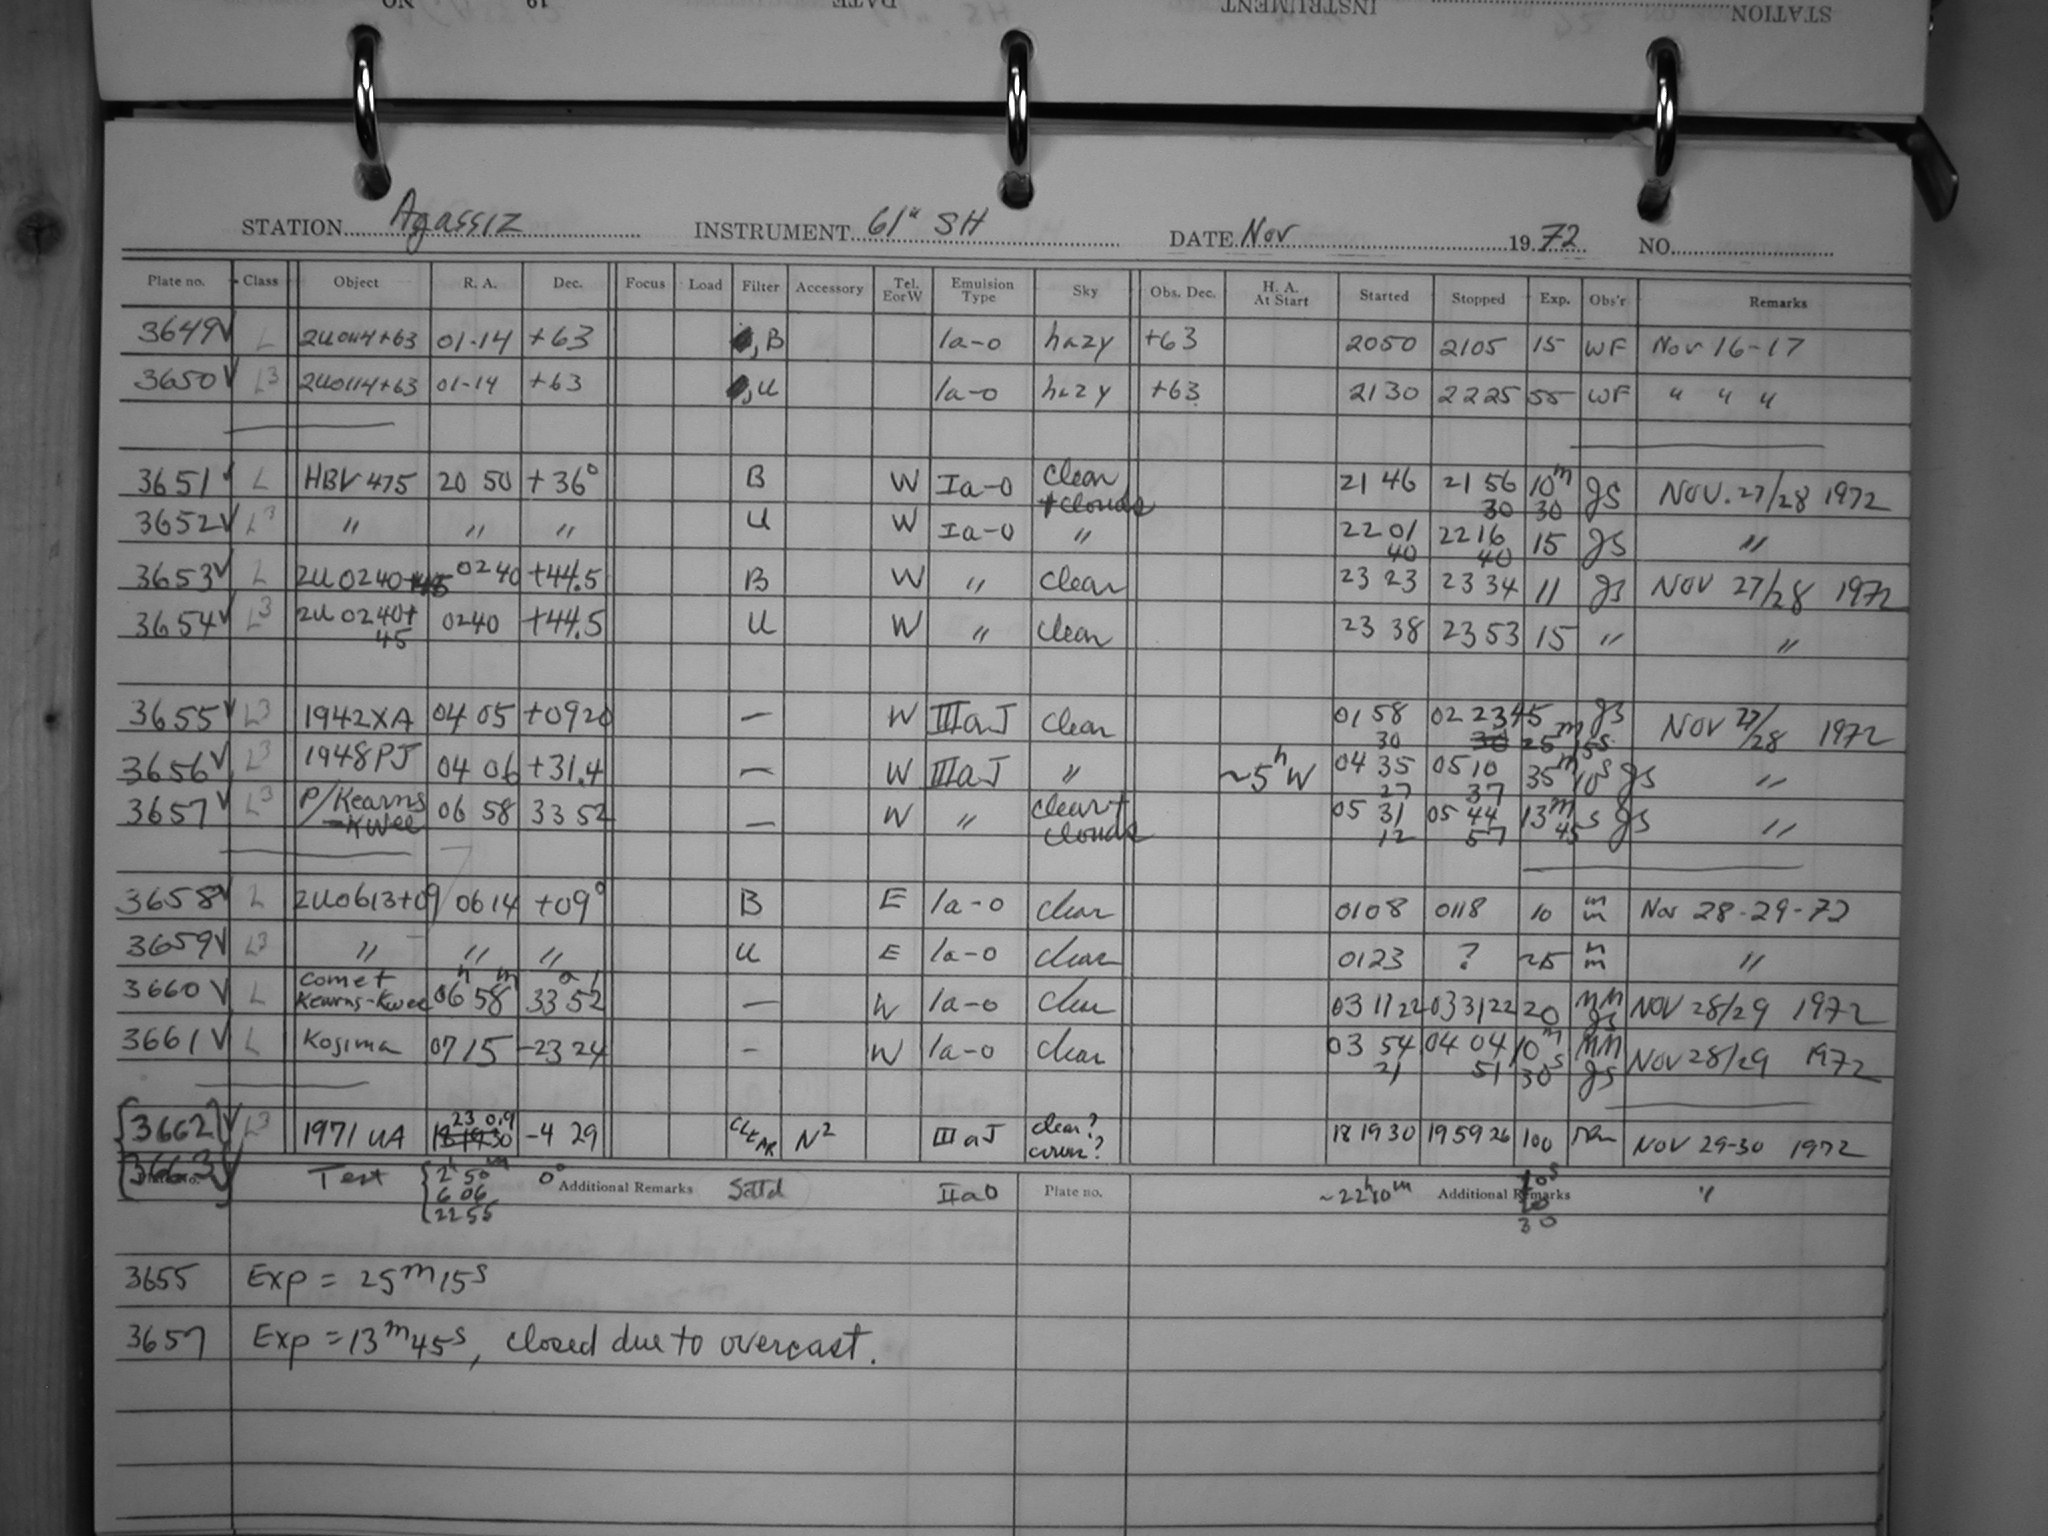 STATION Agassiz INSTRUMENT 61" SH DATE Nov 1972 NO.
Plate no. Class Object R. A. Dec. Focus Load Filter Accessory Tel. EorW Emulsion Type Sky Obs. Dec. H. A. At Start Started Stopped Exp. Obs'r Remarks
3649 √ L 2U0114+63 01-14 +63 , B 1a-0 hazy +63 2050 2105 15 WF Nov 16-17
3650 √ L3 2U0114+63 01-14 +63 , U 1a-0 hazy +63 2130 2225 55 WF " " "
3651 √ L HBV 475 20 50 +36° B W Ia-0 clear + clouds 21 46 21 56 30 10m 30 JS NOV. 27/28 1972
3652 √ L3 " " " U W Ia-0 " 22 01 40 22 16 40 15 JS "
3653 √ L 2U 0240+45 0240 +44.5 B W " clear 23 23 23 34 11 JS NOV 27/28 1972
3654 √ L3 2U 0240+45 0240 +44.5 U W " clear 23 38 23 53 15 " "
3655 √ L3 1942XA 04 05 +0920 — W IIIaJ clear 01 58 30 02 23 45 30 25m 15s JS NOV 27/28 1972
3656 √ L3 1948PJ 04 06 +31.4 — W IIIaJ " ~5h W 04 35 27 05 10 37 35m 10s JS "
3657 √ L3 P/Kearns-Kwee 06 58 33 52 — W " clear + clouds 05 31 12 05 44 57 13m 45s JS "
3658 √ L 2U0613+09 0614 +09° B E 1a-0 clear 0108 0118 10 mm Nov 28-29-72
3659 √ L3 " " " U E 1a-0 clear 0123 ? ~15 mm "
3660 √ L comet Kearns-Kwee 06h 58m 33° 52' — W 1a-0 clear 03 11 22 03 31 22 20 MM JS NOV 28/29 1972
3661 √ L Kojima 07 15 -23 24 – W 1a-0 clear 03 54 21 04 04 51 10m 30s MM JS NOV 28/29 1972
3662 √ L3 1971 UA 23 0.9 18 19 30 -4 29 CLEAR N2 IIIaJ clear? 18 19 30 19 59 26 100 NOV 29-30 1972
3663 √ Test 2h 50m 6 06 22 55 0° IIa0 ~22h10m 30 "
Additional Remarks Plate no. Additional Remarks
3655 Exp = 25m 15s
3657 Exp = 13m 45s, closed due to overcast.